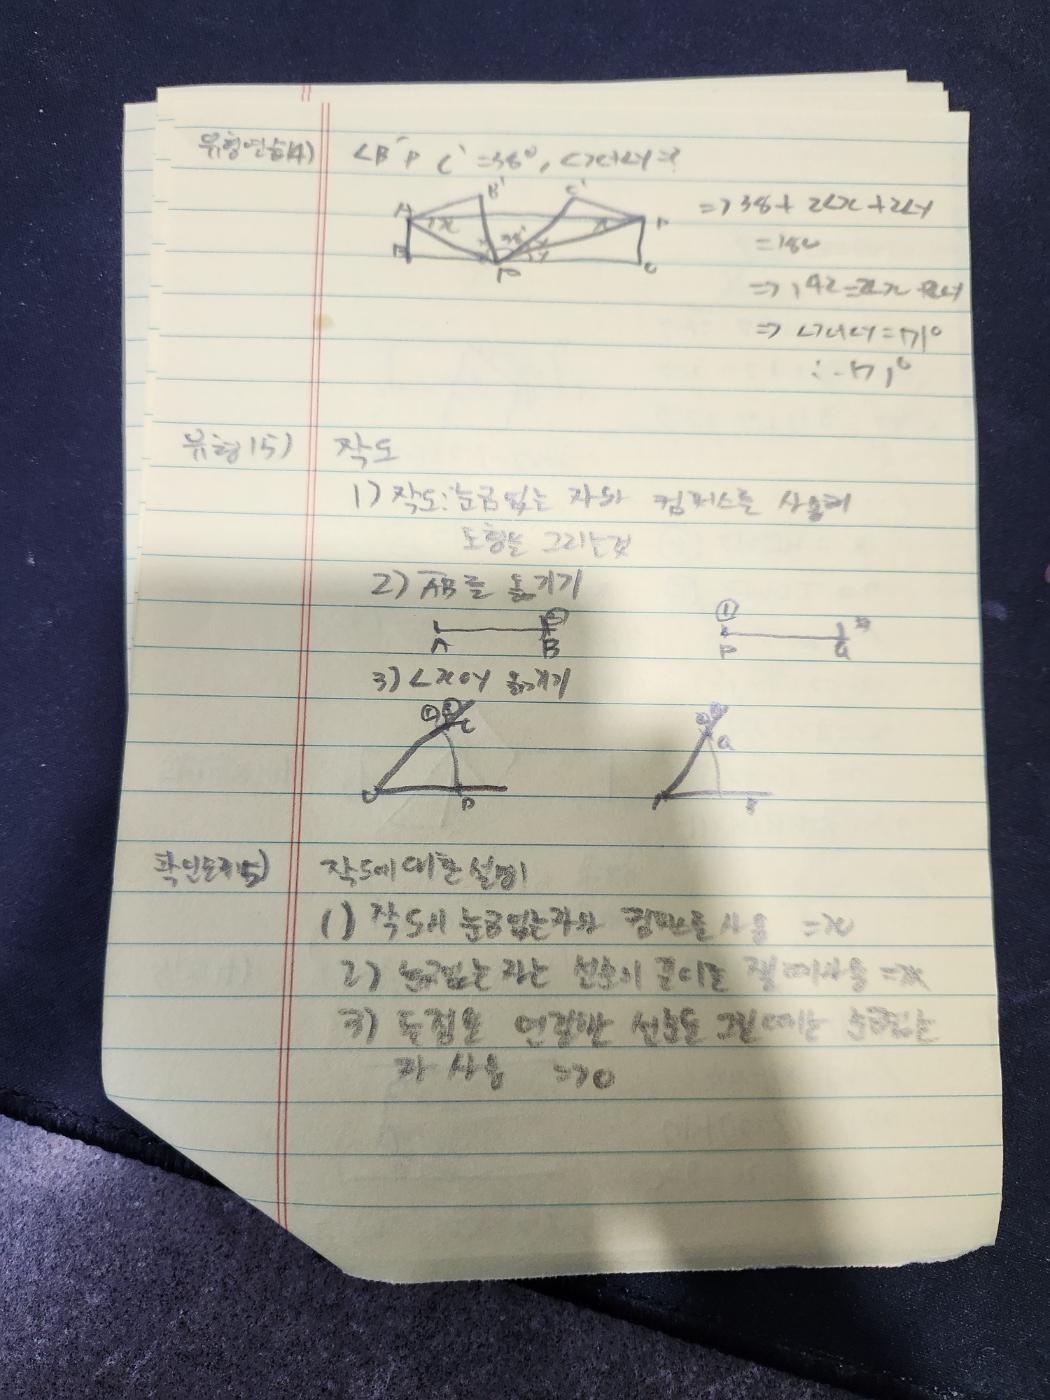 유형연습14) ∠B'P C' = 38°, ∠x+∠y=?
A B' C' D
x x
B 38° y C
P
=> 38 + 2∠x + 2∠y
= 180
=> 142 = 2∠x + 2∠y
=> ∠x+∠y = 71°
∴ 71°
유형15) 작도
1) 작도: 눈금없는 자와 컴퍼스를 사용해
도형을 그리는것
2) AB를 옮기기
①
A B P Q
3) ∠XOY 옮기기
C Q
O D P
확인문제15) 작도에 대한 설명
(1) 작도시 눈금없는자와 컴퍼스를 사용 => x
2) 눈금없는 자는 선분의 길이를 잴때 사용 => x
3) 두점을 연결한 선분을 그릴 때는 눈금없는
자 사용 => o